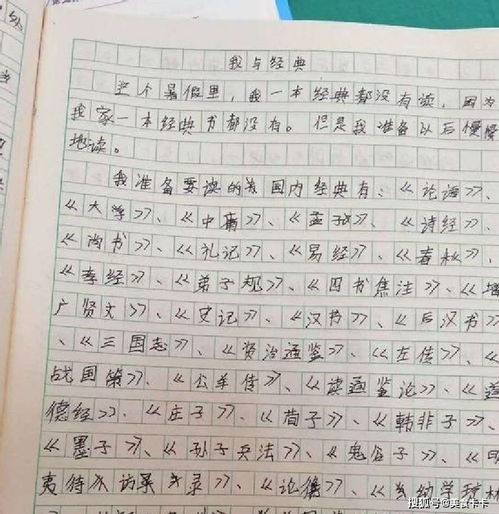 我与经典
这个暑假里，我一本经典都没有读，因为
我家一本经典书都没有。但是我准备以后慢慢
地读。
我准备要读的 国内经典有：《论语》、
《大学》、《中庸》、《孟子》、《诗经》、
《尚书》、《礼记》、《易经》、《春秋》、
《孝经》、《弟子规》、《四书集注》、《增
广贤文》、《史记》、《汉书》、《后汉书》
、《三国志》、《资治通鉴》、《左传》、《
战国策》、《公羊传》、《读通鉴论》、《道
德经》、《庄子》、《荀子》、《韩非子》、
《墨子》、《孙子兵法》、《鬼谷子》、《
夷待 访录 录》、《论衡》、《 幼学琼林
搜狐号@美食卡卡